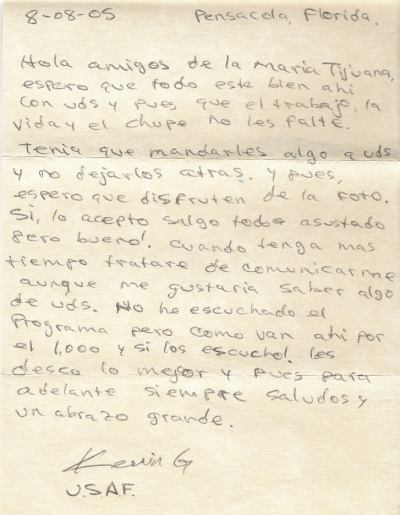 8-08-05 Pensacola, Florida.
Hola amigos de la Maria Tijuana,
espero que todo este bien ahi
con uds y pues que el trabajo, la
vida y el chupe no les falte.
Tenia que mandarles algo a uds
y no dejarlos atras. y pues,
espero que disfruten de la foto.
Si, lo acepto salgo todo asustado
pero bueno!. Cuando tenga mas
tiempo tratare de comunicarme
aunque me gustaria saber algo
de uds. No he escuchado el
Programa pero como van ahi por
el 1,000 y si los escucho!. les
deseo lo mejor y pues para
adelante siempre saludos y
un abrazo grande.
Kevin G
U.S.A.F.